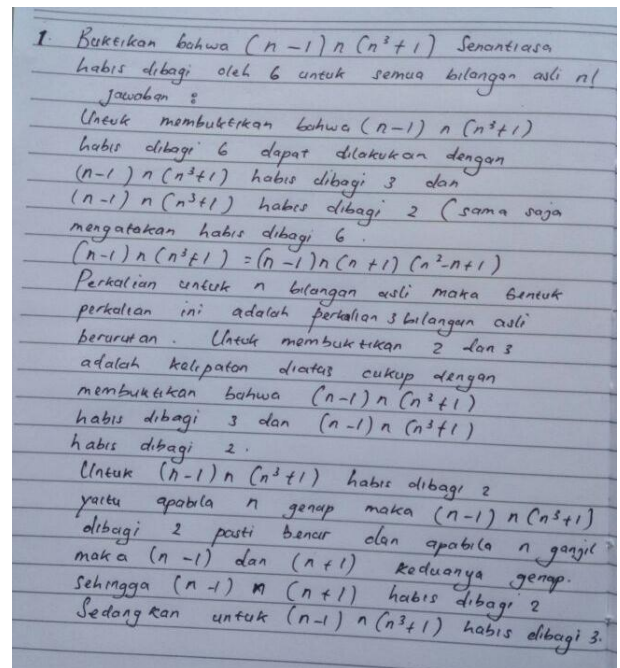 1. Buktikan bahwa (n-1) n (n³+1) Senantiasa
habis dibagi oleh 6 untuk semua bilangan asli n!
Jawaban :
Untuk membuktikan bahwa (n-1) n (n³+1)
habis dibagi 6 dapat dilakukan dengan
(n-1) n (n³+1) habis dibagi 3 dan
(n-1) n (n³+1) habis dibagi 2 (sama saja
mengatakan habis dibagi 6.
(n-1) n (n³+1) = (n-1) n (n+1) (n²-n+1)
Perkalian untuk n bilangan asli maka bentuk
perkalian ini adalah perkalian 3 bilangan asli
berurutan. Untuk membuktikan 2 dan 3
adalah kelipatan diatas cukup dengan
membuktikan bahwa (n-1) n (n³+1)
habis dibagi 3 dan (n-1) n (n³+1)
habis dibagi 2.
Untuk (n-1) n (n³+1) habis dibagi 2
yaitu apabila n genap maka (n-1) n (n³+1)
dibagi 2 pasti benar dan apabila n ganjil
maka (n-1) dan (n+1) keduanya genap.
Sehingga (n-1) n (n+1) habis dibagi 2
Sedangkan untuk (n-1) n (n³+1) habis dibagi 3.